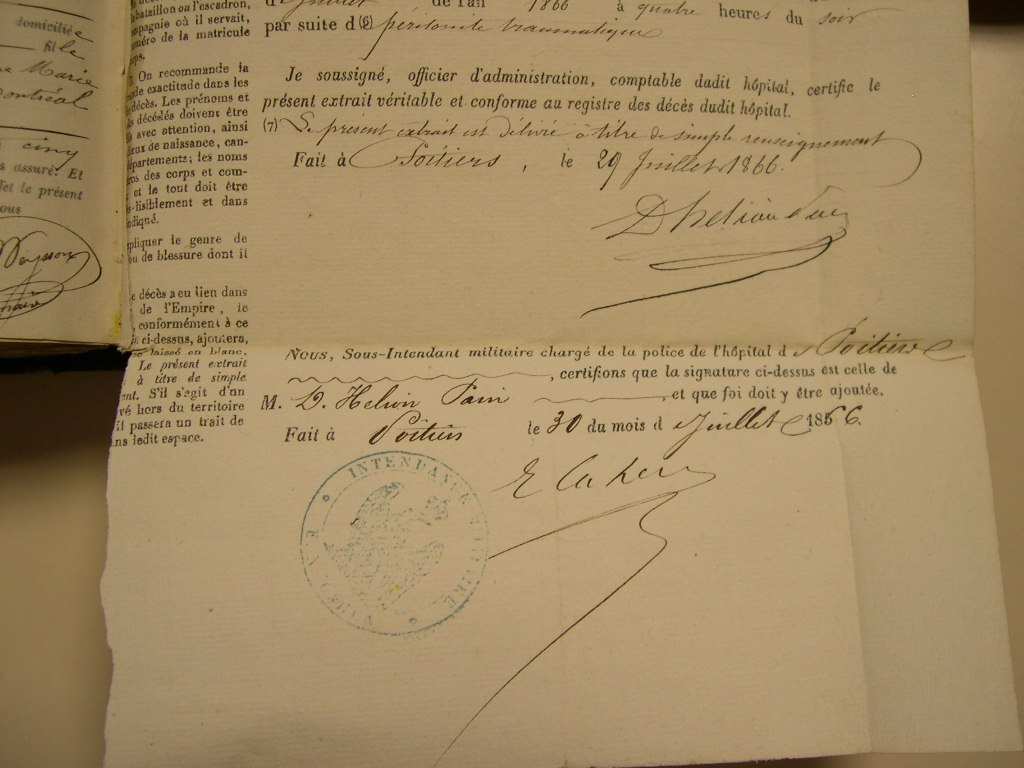 domiciliée
fils de
Marie
Montréal
cinq
assuré. Et
et le présent
bataillon ou l'escadron,
compagnie où il servait,
numéro de la matricule
corps.
On recommande la
grande exactitude dans les
décès. Les prénoms et
décédés doivent être
avec attention, ainsi
lieux de naissance, can-
départements; les noms
des corps et com-
et le tout doit être
lisiblement et dans
indiqué.
expliquer le genre de
ou de blessure dont il
le décès a eu lieu dans
de l'Empire, le
conformément à ce
ci-dessus, ajoutera,
laissé en blanc,
Le présent extrait
à titre de simple
S'il s'agit d'un
hors du territoire
il passera un trait de
dans ledit espace.
Juillet de l'an 1866 à quatre heures du soir
par suite d (6) péritonite traumatique
Je soussigné, officier d'administration, comptable dudit hôpital, certifie le
présent extrait véritable et conforme au registre des décès dudit hôpital.
(7) Le présent extrait est délivré à titre de simple renseignement
Fait à Poitiers, le 29 Juillet 1866.
Nous, Sous-Intendant militaire chargé de la police de l'hôpital d e Poitiers
, certifions que la signature ci-dessus est celle de
M. D. Helion et que foi doit y être ajoutée.
Fait à Poitiers le 30 du mois d e Juillet 1866.
E Cahen
INTENDANCE MILITAIRE